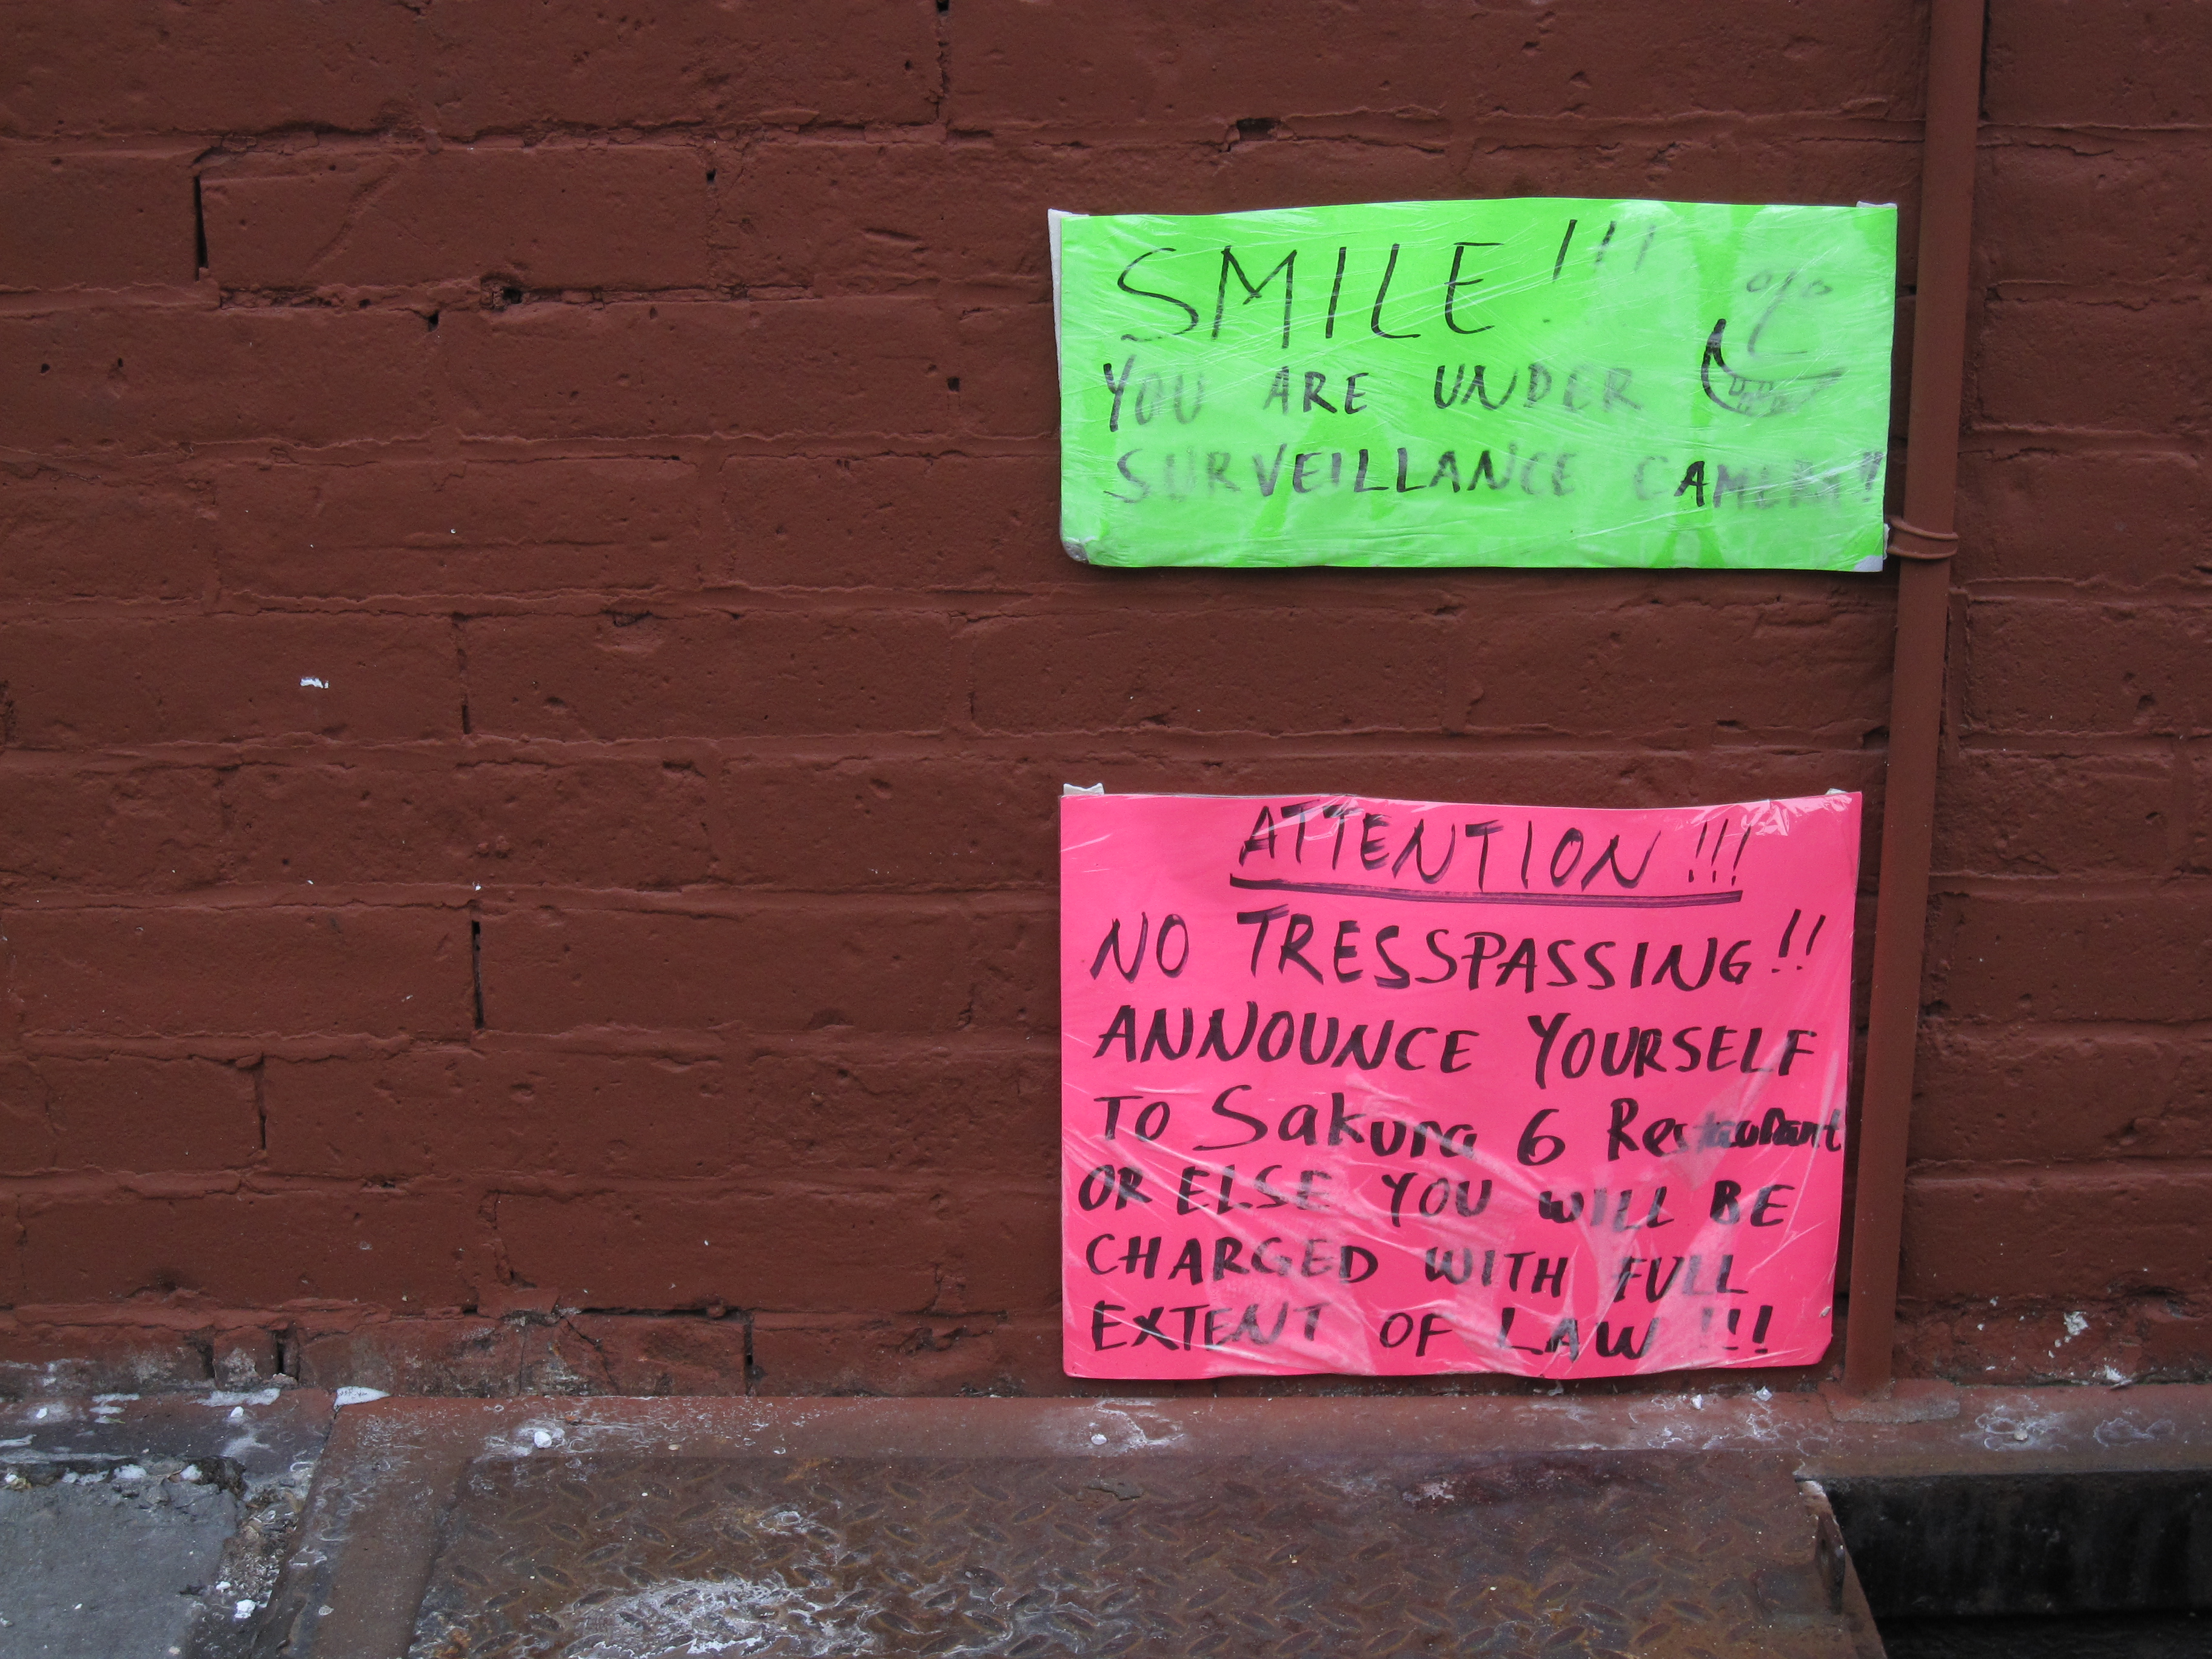 SMILE!!!
YOU ARE UNDER
SURVEILLANCE CAMERA!!
ATTENTION!!!
NO TRESSPASSING!!
ANNOUNCE YOURSELF
TO Sakura 6 Restaurant
OR ELSE YOU WILL BE
CHARGED WITH FULL
EXTENT OF LAW!!!